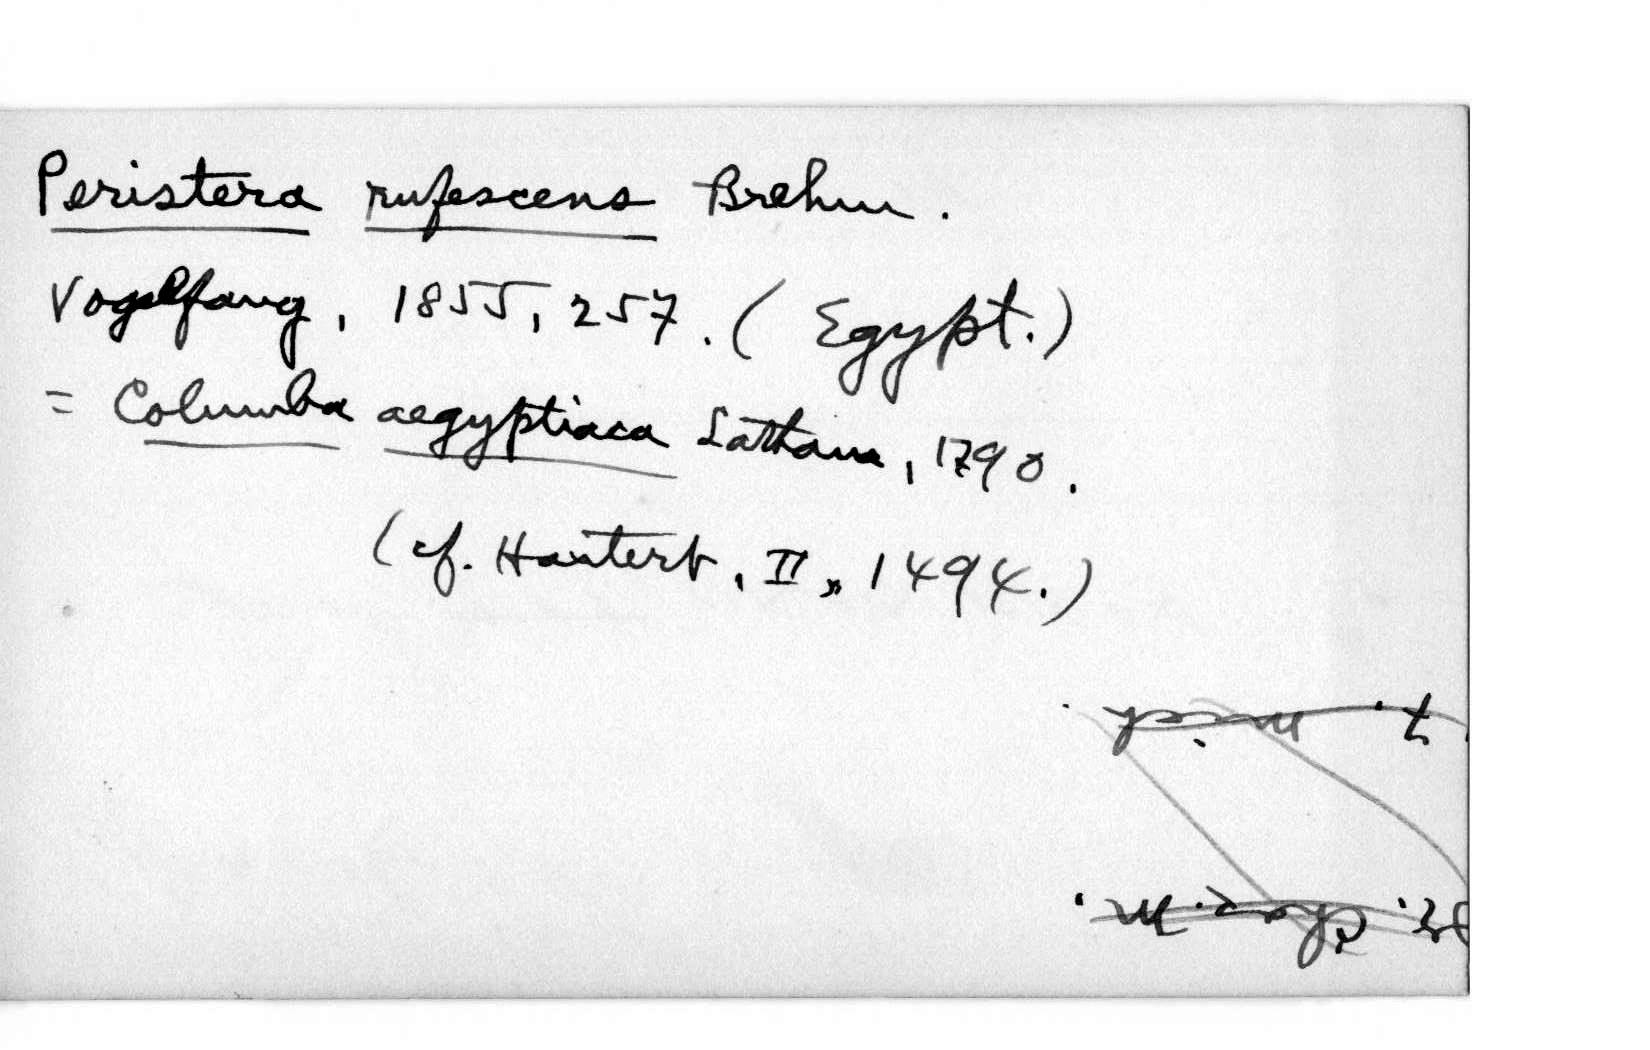 Peristera rufescens Brehm.
Vogelfang, 1855, 257. (Egypt.)
= Columba aegyptiaca Latham, 1790.
(cf. Hartert, II, 1494.)